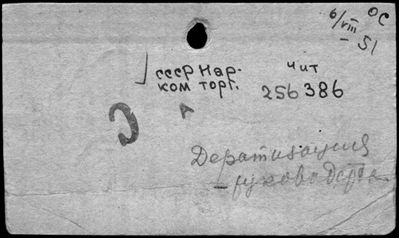 ОС
6/VIII
– 51
СССР Нар-
ком торг.
Чит
256386
А
Дератизация
– руководства